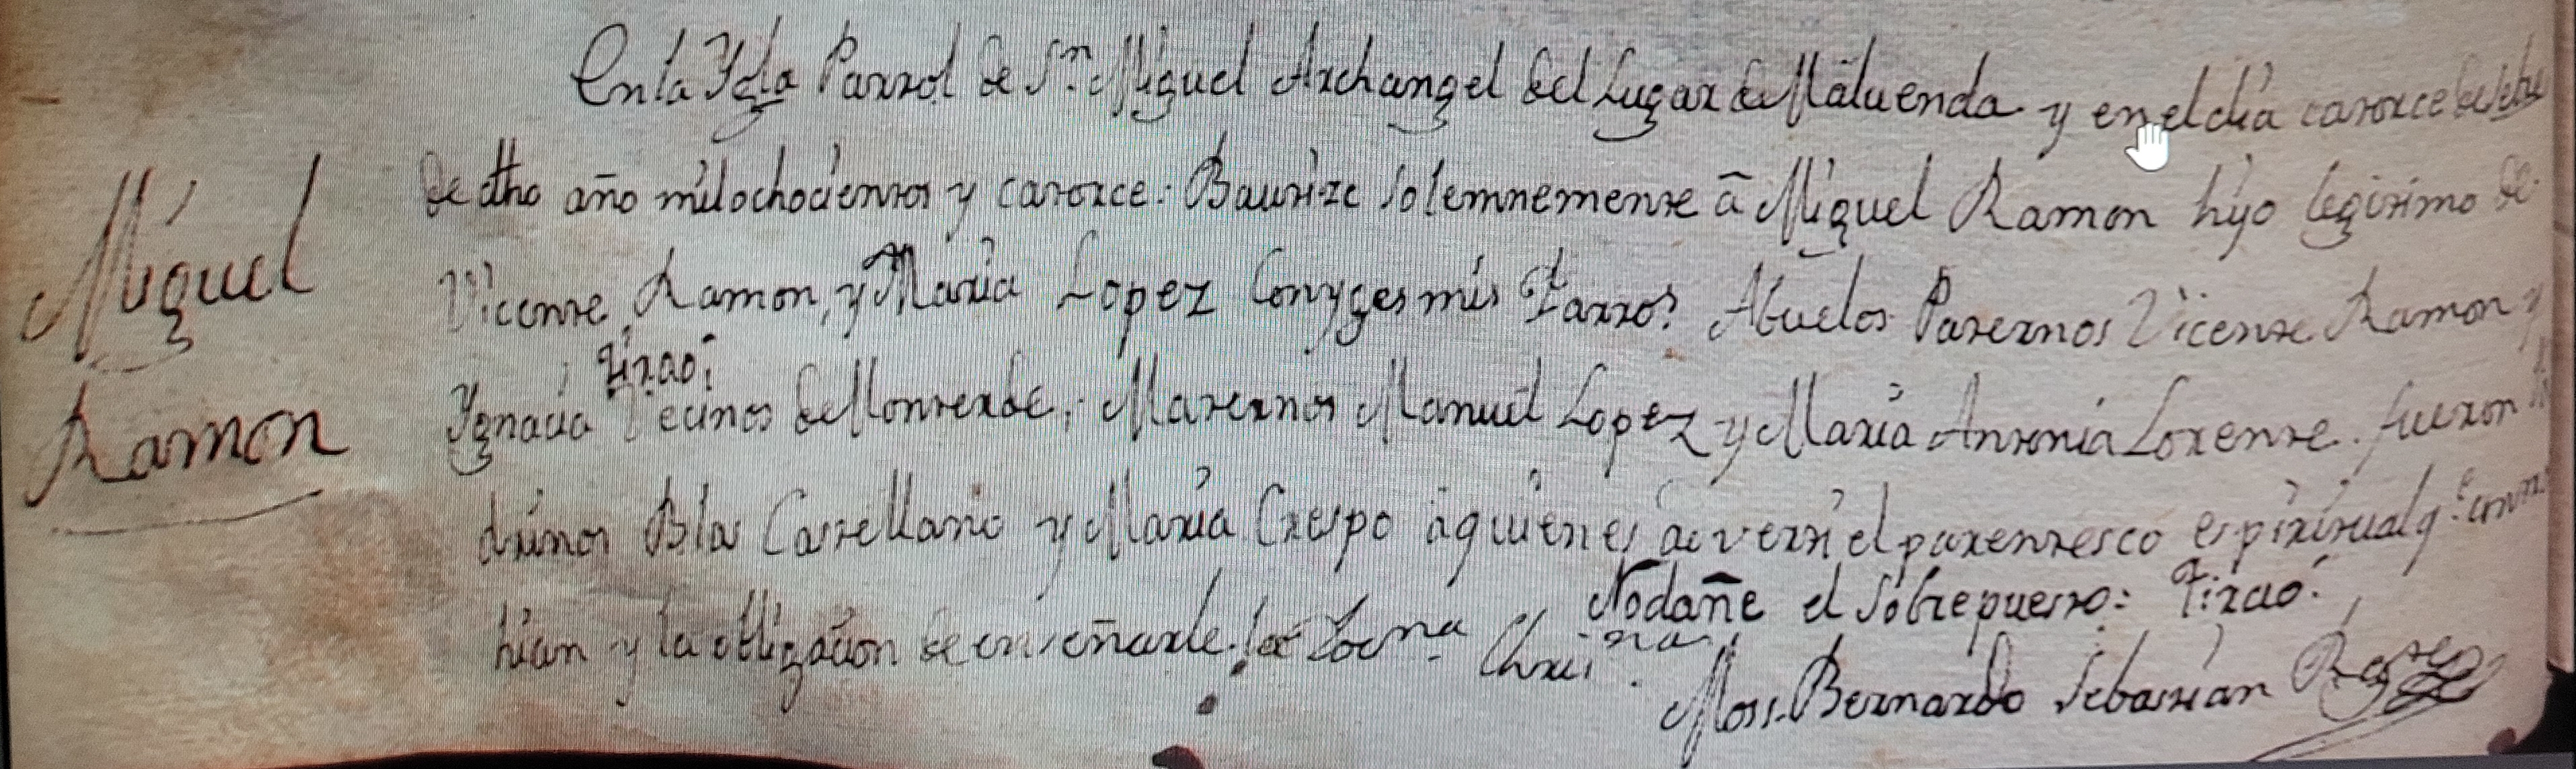 En la Ygla Parrol de Sn. Miguel Archangel del Lugar de Maluenda y en el dia catorce de
Miguel
de dho año mil ochocientos y catorce. Bautize solemnemente â Miguel Ramon hijo legitimo de
Vicente Ramon, y Maria Lopez Conyges mis Parros. Abuelos Paternos Vicente Ramon y
Tirao.
Ramon
Ygnacia Vecinos de Monterde, Maternos Manuel Lopez y Maria Antonia Lorente. fueron
drinos Blas Castellano y Maria Crespo â quienes adverti el parentesco espiritual q.e
Nodañe el sobrepuesto: Tirao.
hian y la obligacion de enseñarle la Docna. Chrisna.
Moss. Bernardo Sebastian